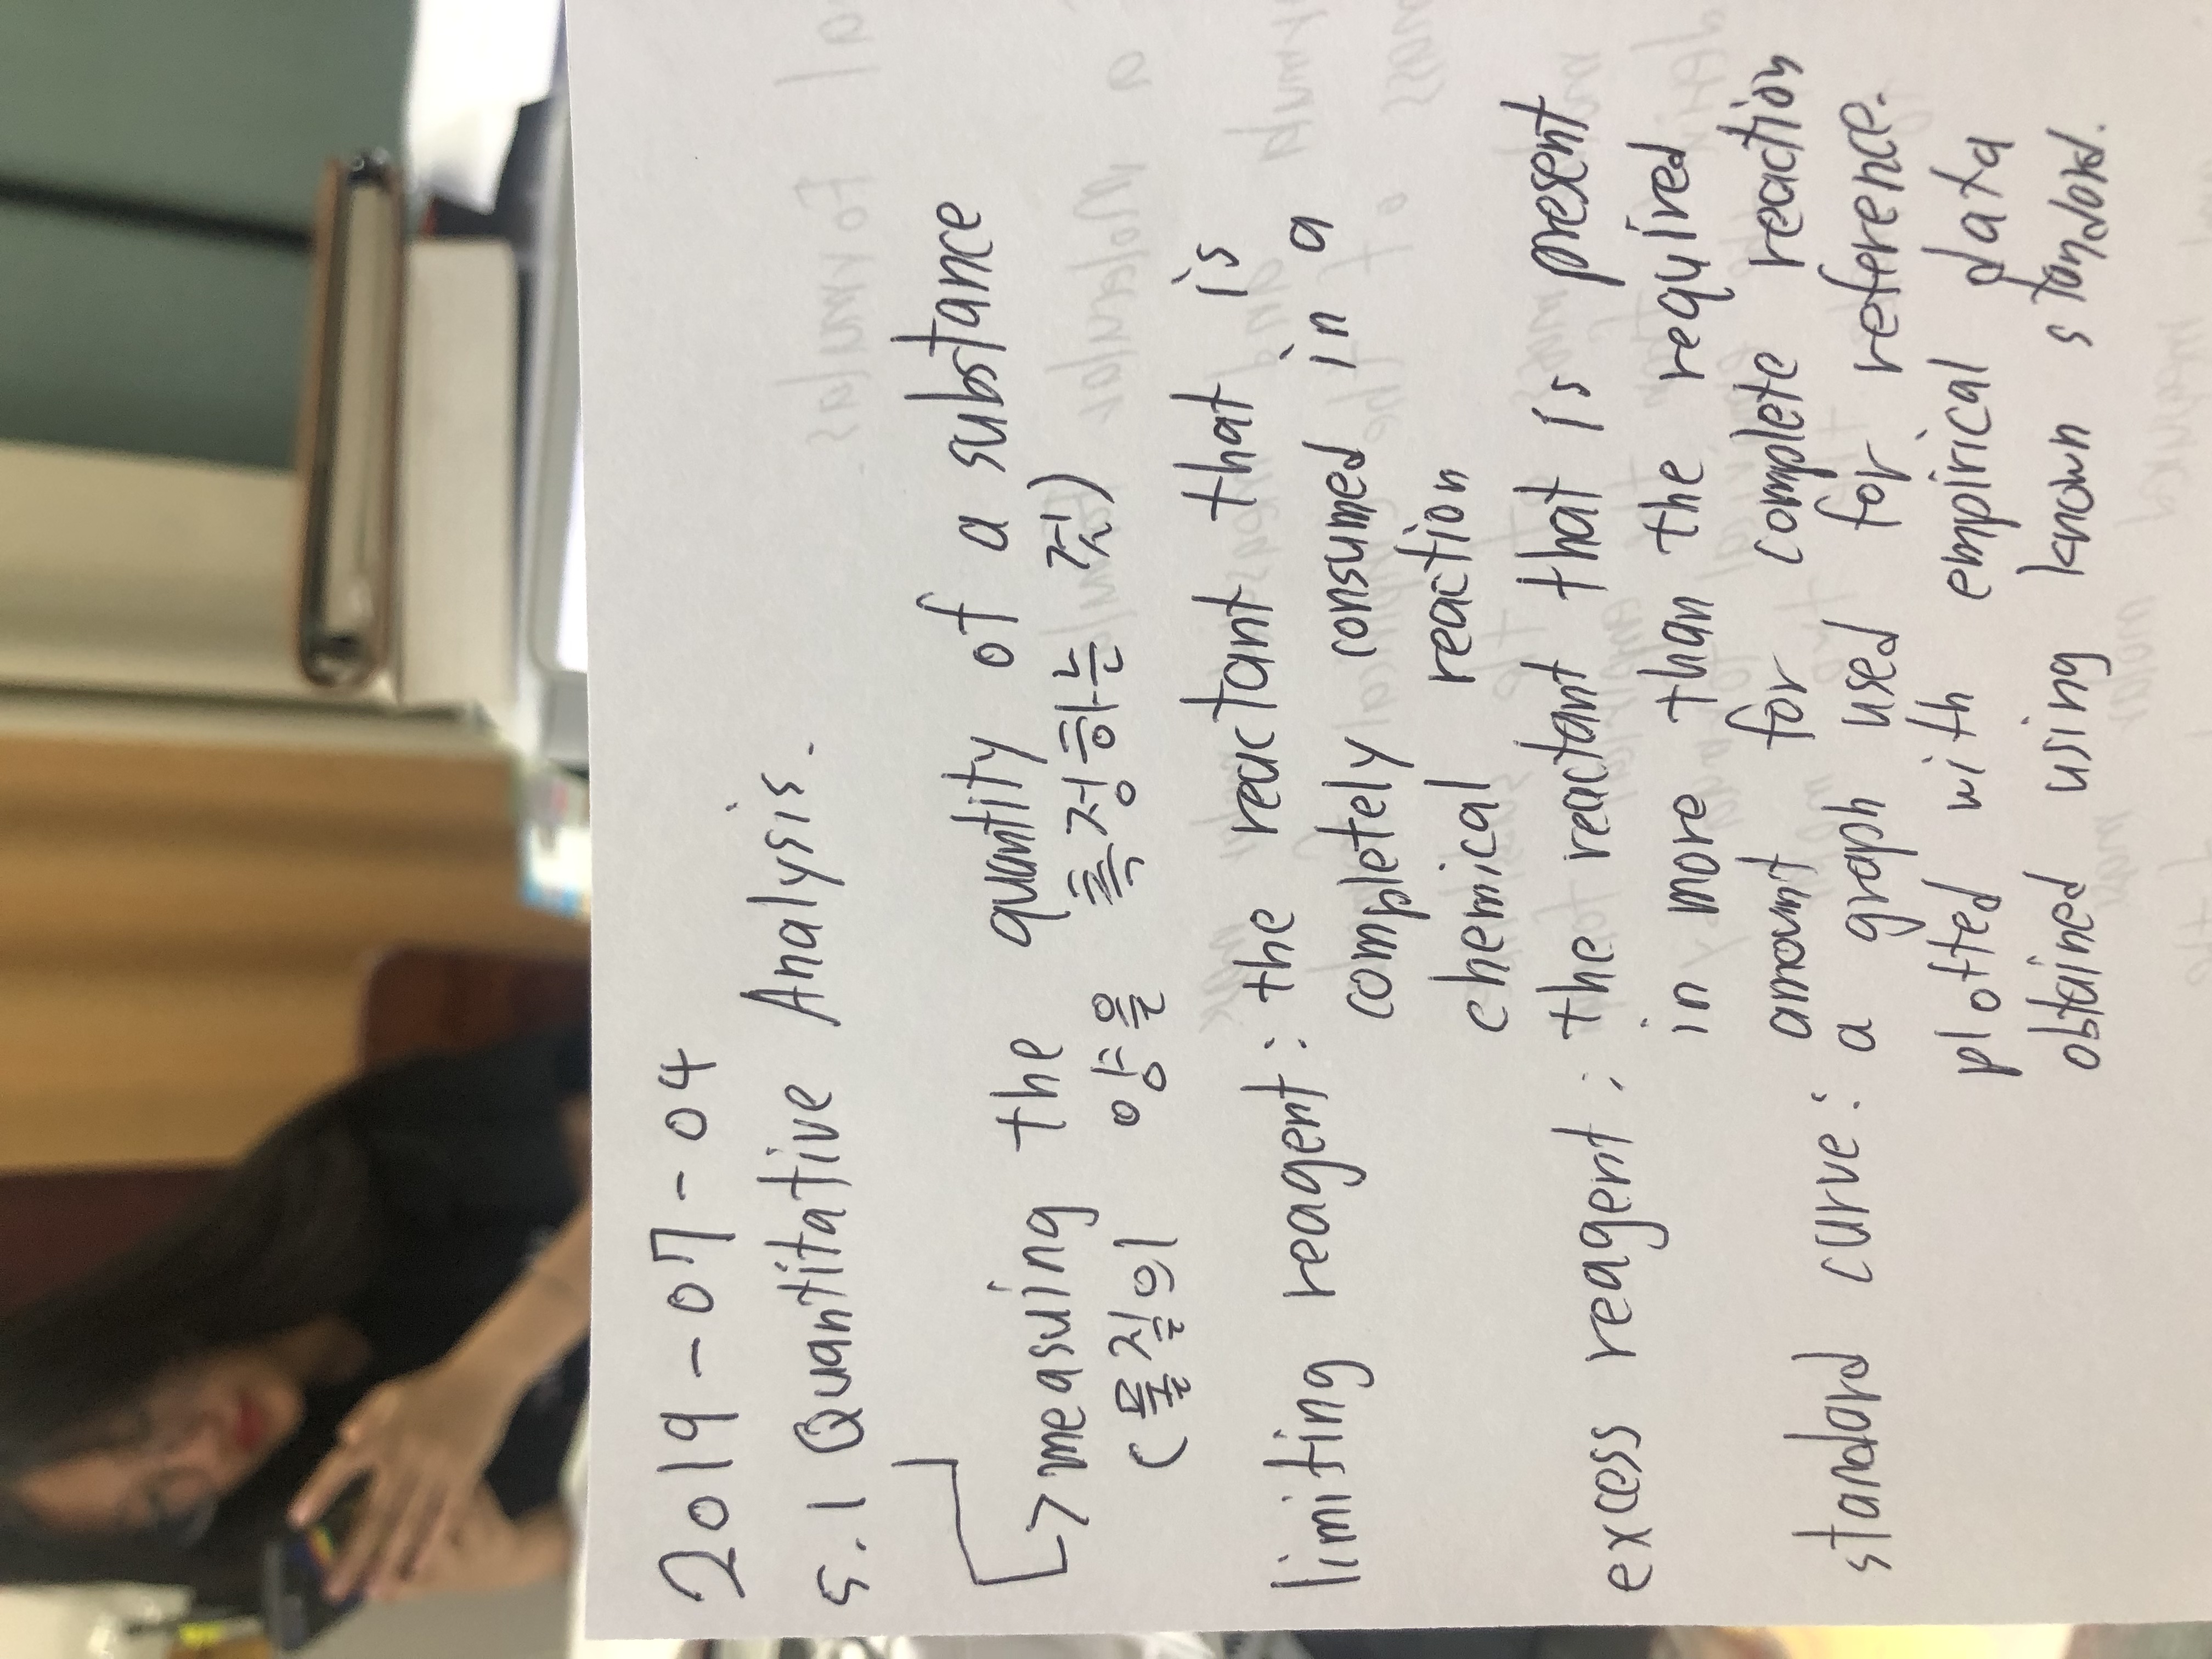 2019-07-04
5.1 Quantitative Analysis.
↳ measuing the quantity of a substance
(물질의 양을 측정하는 것)
limiting reagent: the reactant that is
completely consumed in a
chemical reaction
excess reagent: the reactant that is present
in more than the required
amount for complete reaction
standard curve: a graph used for reference.
plotted with empirical data
obtained using known standard.